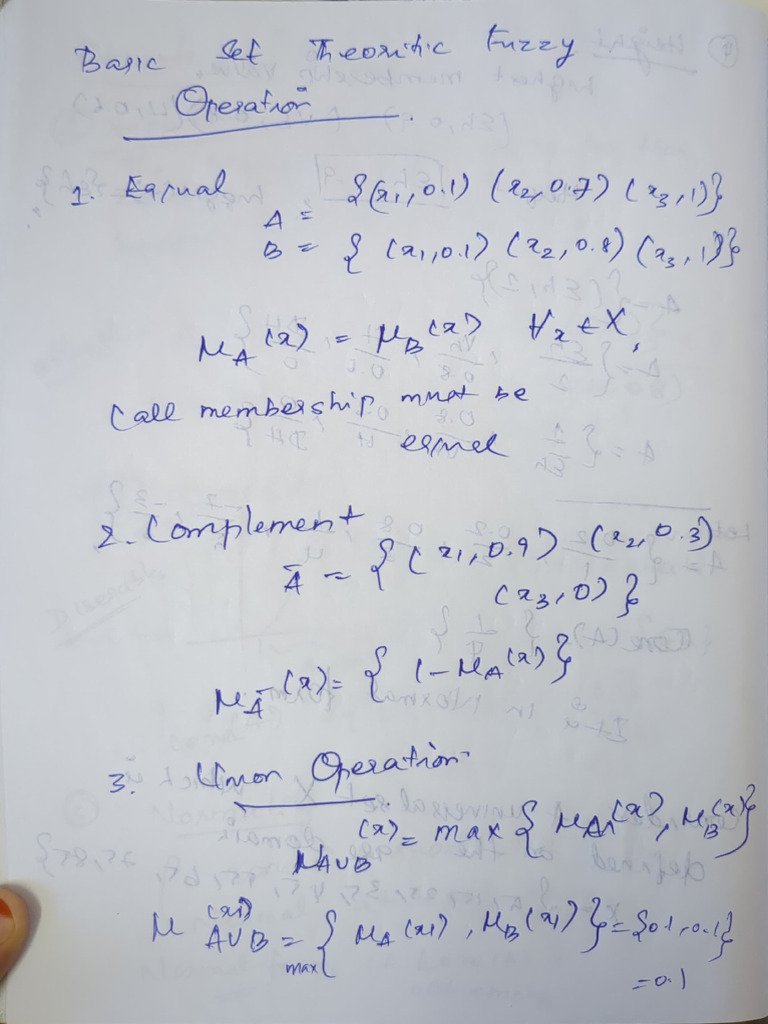 Basic Set Theoritic Fuzzy
Operation.
1. Eqnual
A = {(x1, 0.1) (x2, 0.7) (x3, 1)}
B = { (x1, 0.1) (x2, 0.8) (x3, 1)}
μA (x) = μB (x) ∀x ∈ X,
(all membership must be
equel
2. Complement
Ā = { (x1, 0.9) (x2, 0.3)
(x3, 0) }
μĀ (x) = { 1 - μA (x) }
3. Union Operation
μA∪B (x) = max { μA (x), μB (x) }
μA∪B (x1) = max { μA (x1), μB (x1) } = {0.1, 0.1}
= 0.1